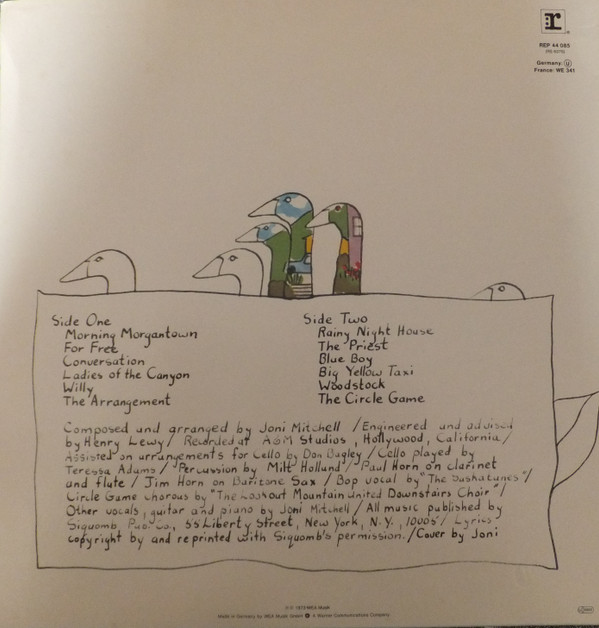 r
REP 44 085
(RS 6376)
Germany: U
France: WE 341
Side One
Morning Morgantown
For Free
Conversation
Ladies of the Canyon
Willy
The Arrangement
Side Two
Rainy Night House
The Priest
Blue Boy
Big Yellow Taxi
Woodstock
The Circle Game
Composed and arranged by Joni Mitchell / Engineered and advised
by Henry Lewy / Recorded at A&M Studios, Hollywood, California /
Assisted on arrangements for Cello by Don Bagley / Cello played by
Teressa Adams / Percussion by Milt Holland / Paul Horn on clarinet
and flute / Jim Horn on Baritone Sax / Bop vocal by "The Saskatunes" /
Circle Game chorous by "The Lookout Mountain United Downstairs Choir" /
Other vocals, guitar and piano by Joni Mitchell / All music published by
Siquomb Pub. Co., 55 Liberty Street, New York, N.Y., 10005 / Lyrics
copyright by and reprinted with Siquomb's permission. / Cover by Joni
Made in Germany by WEA Musik GmbH A Warner Communications Company